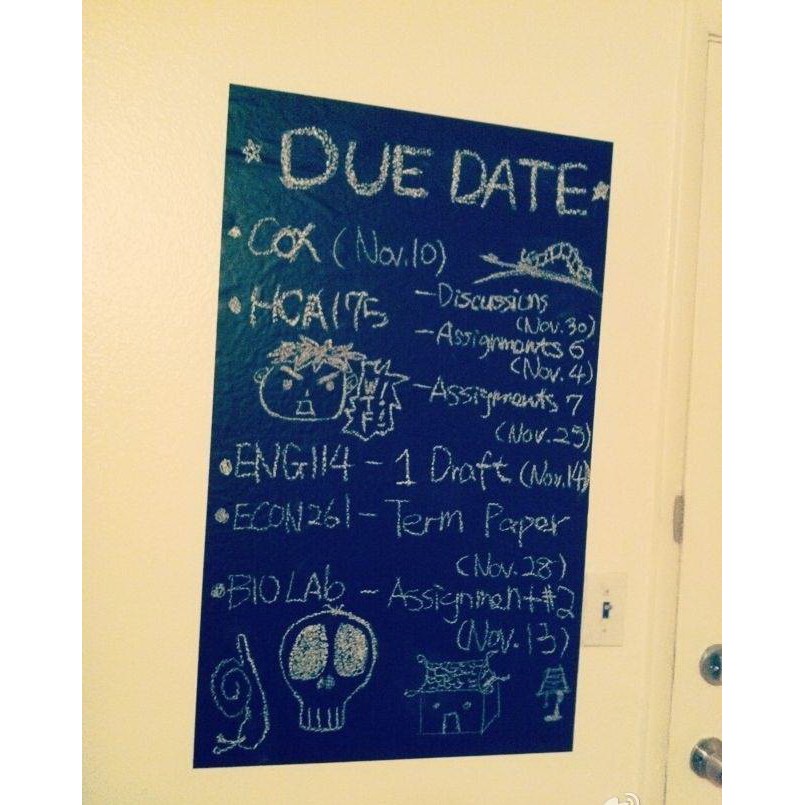 DUE DATE
• COX (Nov.10)
• HCA175 - Discussions
(Nov.30)
- Assignments 6
(Nov. 4)
- Assignments 7
(Nov.25)
WTF!
• ENG114 - 1 Draft (Nov.14)
• ECON261 - Term Paper
(Nov.28)
• BIO LAb - Assignment#2
(Nov.13)